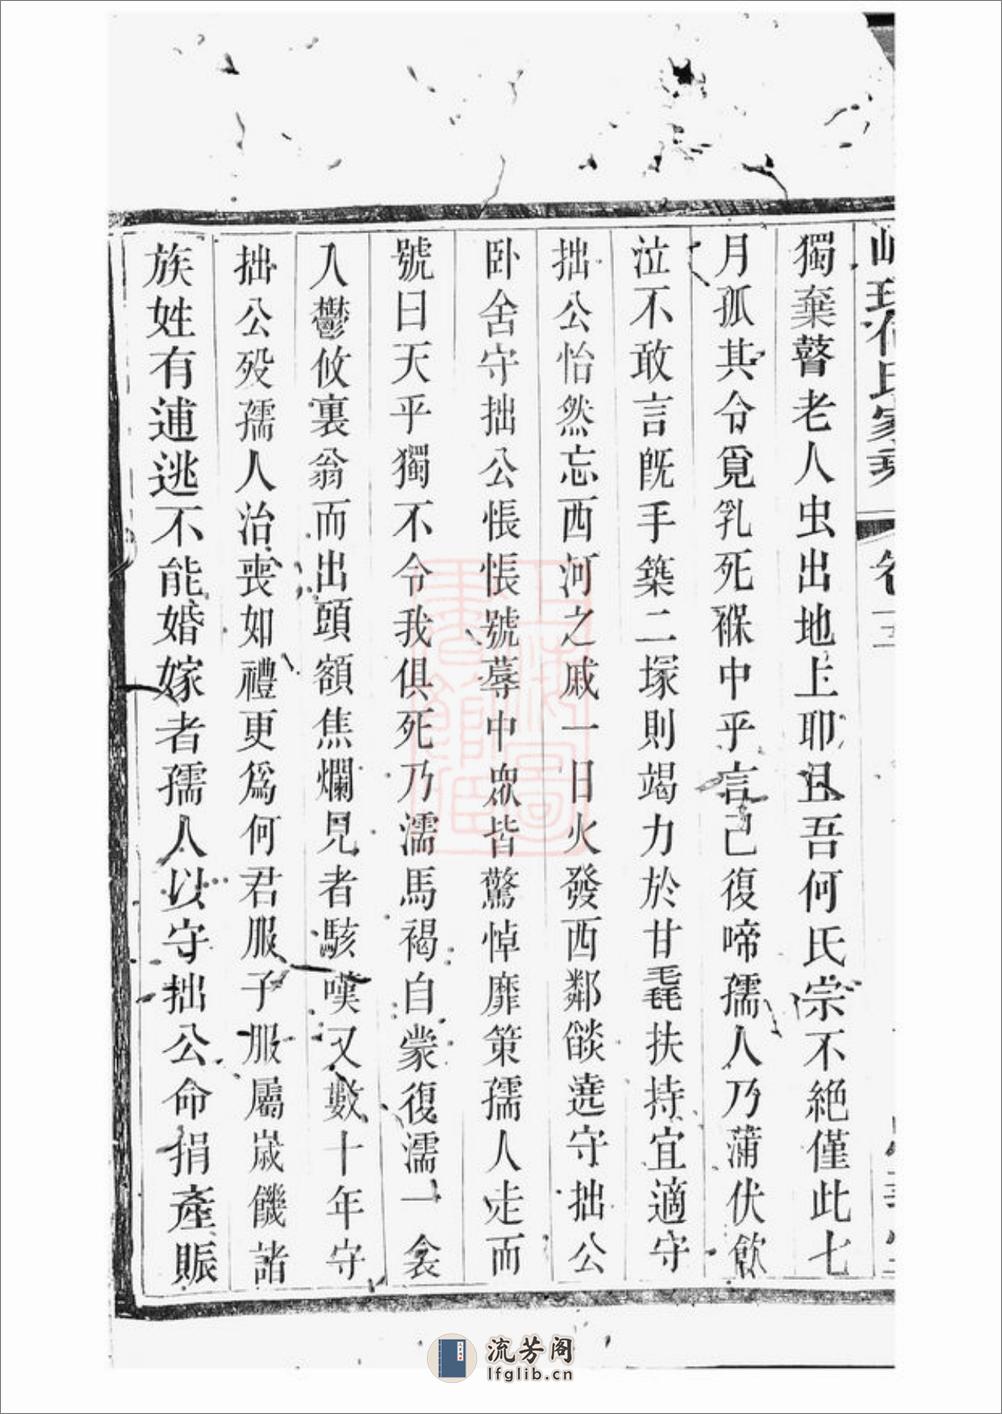 獨棄瞽老人虫出地上耶且吾何氏宗不絶僅此七
月孤其令覓乳死褓中乎言已復啼孺人乃蒲伏飲
泣不敢言旣手築二塚則竭力於甘毳扶持宜適守
拙公怡然忘西河之戚一日火發西鄰燄遶守拙公
卧舍守拙公悵悵號蓐中眾皆驚悼靡策孺人走而
號曰天乎獨不令我俱死乃濡馬褐自蒙復濡一衾
入鬱攸裏翁而出頭額焦爛見者駭嘆又數十年守
拙公殁孺人治喪如禮更爲何君服子服屬歲饑諸
族姓有逋逃不能婚嫁者孺人以守拙公命捐產賑
氏家乘
卷
流芳阁
lfglib.cn